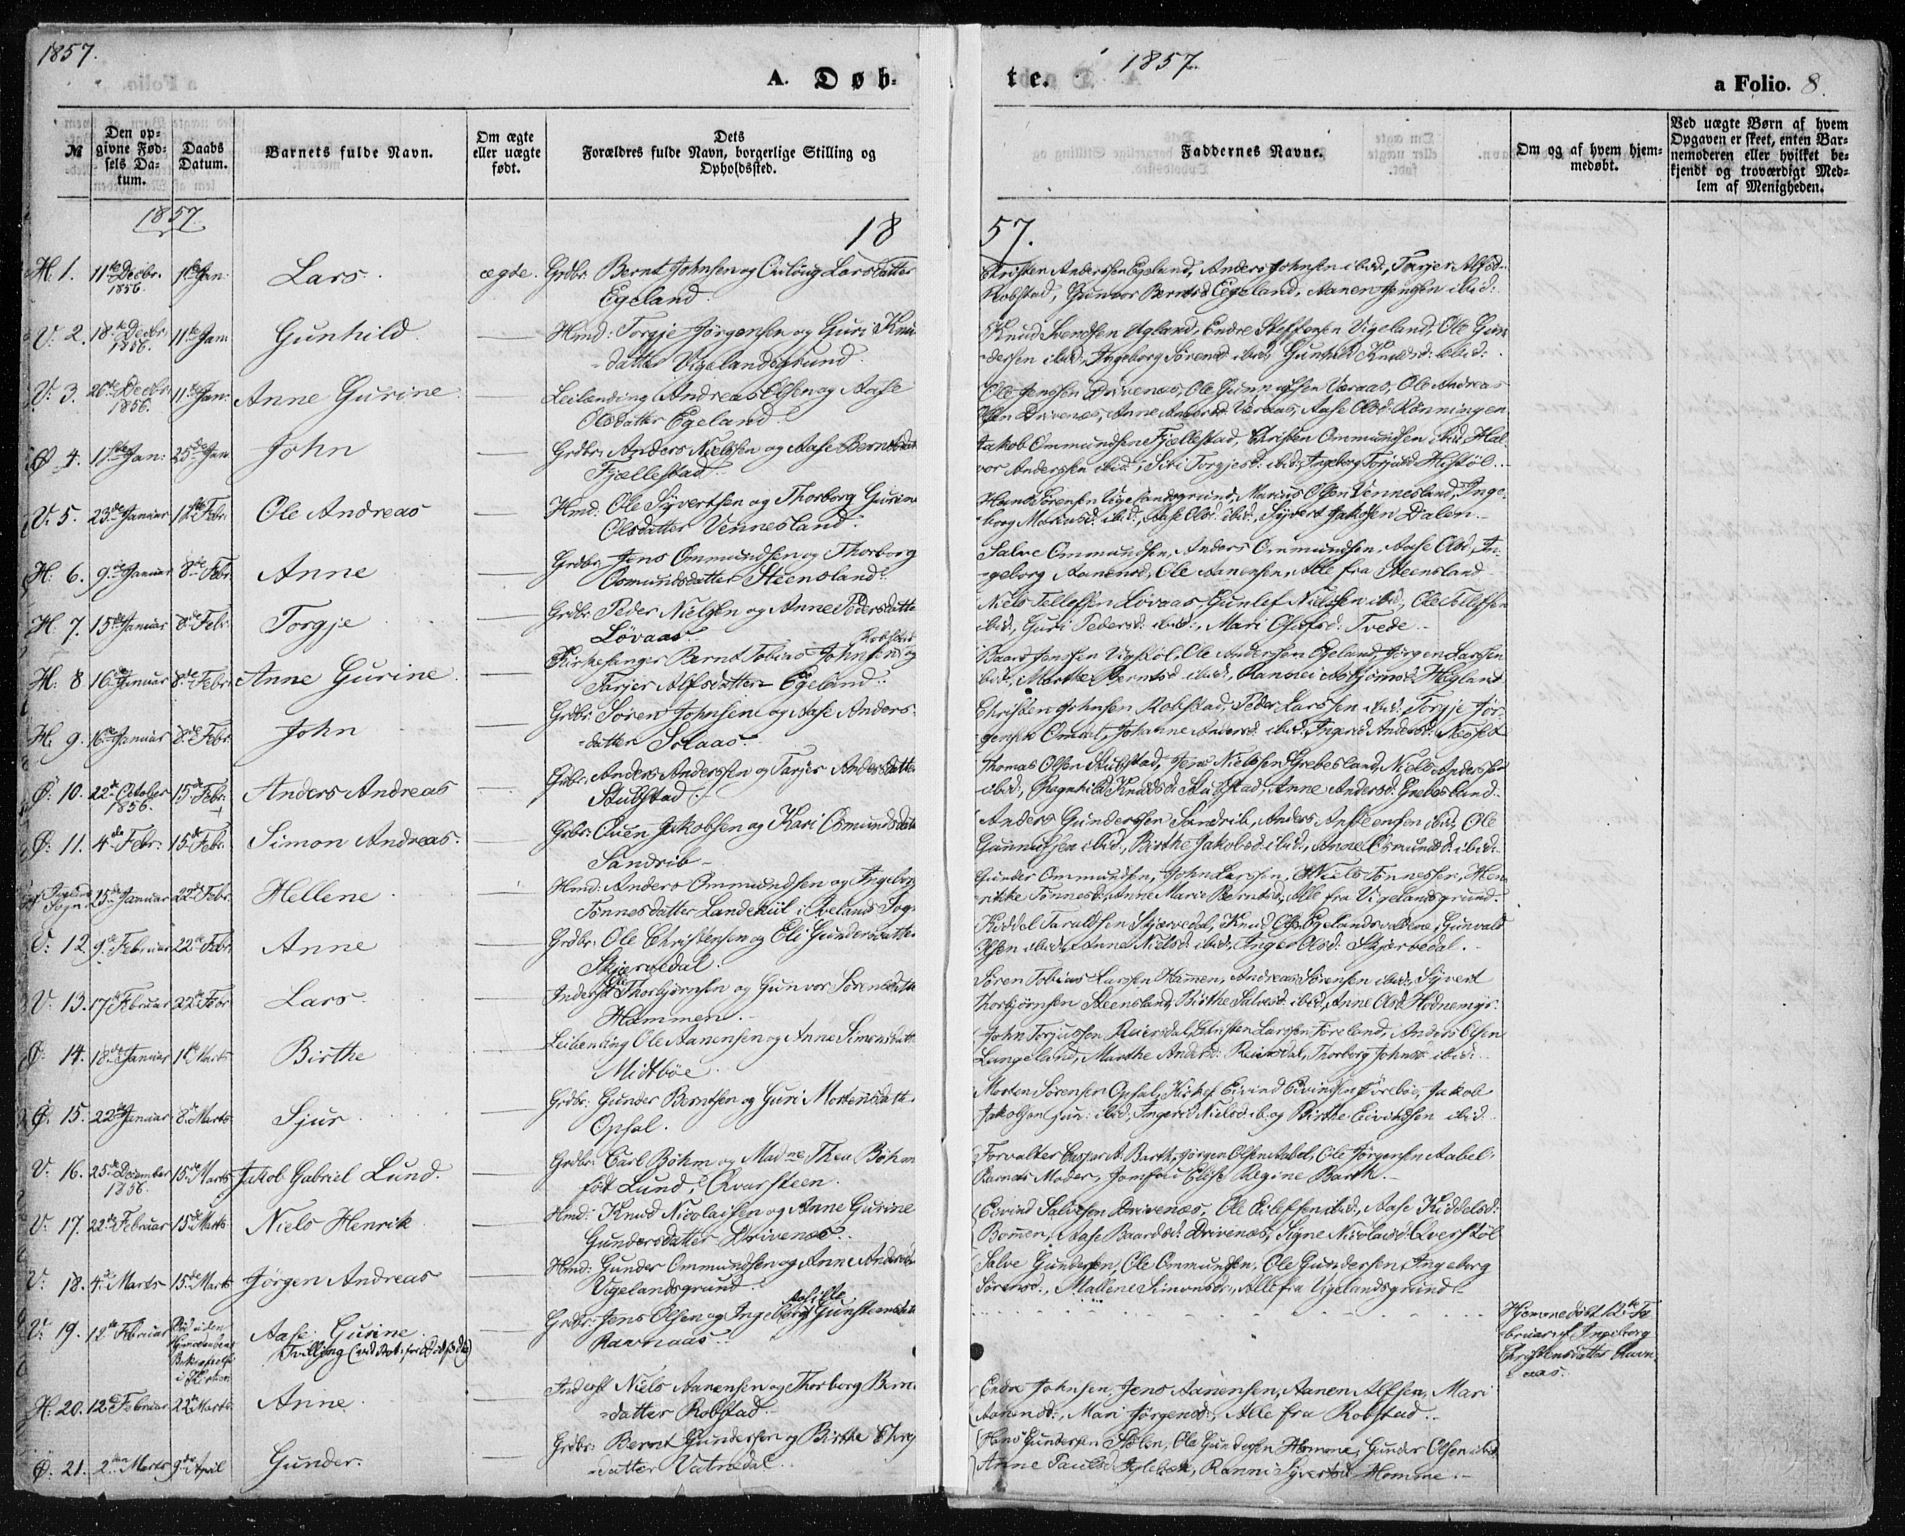 1857.
A. Døb-
№
Den op-
givne Fød-
sels Da-
tum.
Daabs
Datum.
Barnets fulde Navn.
Om ægte
eller uægte
født.
Dets
Forældres fulde Navn, borgerlige Stilling og
Opholdssted.
1857.
18
H. 1. 11te Decbr. 1ste Jan: Lars. ægte. Grdbr. Bernt Johnsen og Larsdatter
1856. Egeland.
V. 2. 18de Decbr. 11te Jan: Gunhild — Hmd: Torgje Jørgensen og Guri Knu
1856. -datter Vigelandsgrund.
V. 3. 26de Decbr. 11te Jan: Anne Gurine — Leilending Andreas Olsen og Aase
1856. Olsdatter Egeland.
Ø. 4. 11te Jan: 25de Jan: John — Grdbr. Anders Nielsen og Aase Berntsdat
Fjellestad.
V. 5. 23de Januar 1ste Febr: Ole Andreas — Hmd: Ole Syvertsen og Thorborg Gurine
Olsdatter Vennesland.
H. 6. 9de Januar 8de Febr. Anne — Grdbr: Jens Ommundsen og Thorborg
Osmundsdatter Steensland.
H. 7. 15de Januar 8de Febr. Torgje — Grdbr: Peder Nielsen og Anne Pedersdatte
Løvaas.
Robstad
H. 8 16de Januar 8de Febr: Anne Gurine. — Kirkesanger Bernt Tobias Johnsen og
Tarjer Alfsdatter Egeland.
H. 9. 16de Januar 8de Febr: John — Grdbr: Søren Johnsen og Aase Anders-
-datter Solaas.
Ø. 10. 22de October 15de Febr: Anders Andreas — Grdbr: Anders Anderssen og Tarjer Andersdatter
1856. Stulstad.
Ø. 11. 4de Febr. 15de Febr. Simon Andreas. — Grdbr. Ouen Jakobsen og Kari Osmundsdat
Sandrib
Sogn 25de Januar 22de Febr. Hellene — Hmd: Anders Ommundsen og Ingeborg
Tønnesdatter Landekiil i Iveland Sogn
V. 12. 9de Februar 22de Febr. Anne — Grdbr: Ole Christensen og Eli Gundersdatte
Skjærvedal.
V. 13. 17de Februar 22de Febr. Lars. — Inderst Thorbjørnsen og Gunvor Sørensdatte
Hammen.
Ø. 14. 18de Januar 1ste Marts Birthe — Leilending Ole Aanensen og Anne Simonsdatt
Midtbøe.
Ø. 15. 22de Januar 8de Marts Sjur — Grdbr. Gunder Berntsen og Guri Mortensdatt
Opsal.
V. 16. 25de December 15de Marts Jakob Gabriel Lund. — Grdbr: Carl Bøhm og Madme Thea Bøhm
1856. født Lund, Qvarsteen.
V. 17. 22de Februar 15de Marts Niels Henrik — Hmd: Knud Nicolaisen og Anne Gurine
Gundersdatter Drivenæs.
V. 18. 4de Marts 15de Marts Jørgen Andreas — Hmd: Gunder Ommundsen og Anne Andersd
Vigelandsgrund.
V. 19. 12te Februar Aase Gurine — Grdbr: Jens Olsen og Ingeborg Gunsteensdat
Tvilling Ravnaas.
H. 20. 12te Februar 22de Marts Anne. — Inderst Niels Aanensen og Thorborg Bern
-datter Robstad.
Ø. 21. 2den Marts 9de April Gunder. Grdbr: Bernt Gundersen og Birthe
-datter Vatnedal.
te. 1857.
a Folio. 8.
Faddernes Navne.
Om og af hvem hjem-
medøbt.
Ved uægte Børn af hvem
Opgaven er skeet, enten Bar-
nemoderen eller hvilket be-
kjendt og troværdigt Med-
lem af Menigheden.
57.
Christen Anderssen Egeland, Anders Johnsen ibid, Tarjer Alfsd.
Robstad, Gunvor Berntsd Egeland, Aanen Jensen ibid:
Knud Svendsen Agland, Endre Steffensen Vigeland, Ole Gun-
-dersen ibid, Ingeborg Sørensd ibid, Gunhild Knudsd: ibid:
Ole Jenssen Drivenæs, Ole Gunnufsen Væraas, Ole Andreas
Olsen Drivenæs, Anne Andersd Væraas, Aase Olsd Rønningen
Jakob Ommundsen Fjellestad, Christen Ommundsen ibid, Hal-
vor Anderssen ibid, Siri Torgjesd: ibid, Ingeborg Torjusd Hestøl.
Hans Sørensen Vigelandsgrund, Marius Olsen Vennesland, Inge-
borg ibid, Aase Olsd. ibid, Syvert Jakobsen Dalen.
Salve Ommundsen, Anders Ommundsen, Aase Olsd, In-
-geborg Aanensd, Ole Aanensen, Alle fra Steensland
Niels Tellefsen Løvaas, Gunlef Nielsen ibid, Ole Tellefsen
ibid, Guri Pedersd: ibid, Mari Tvede.
Baard Jenssen Vigstøl, Ole Anderssen Egeland, Jørgen Larssen
ibid, Marthe Berntsd. ibid, Rannei Asbjørnsd Høgland
Christen Johnsen Robstad, Peder Larssen ibid: Torgje Jør-
gensen Omdal, Johanne Andersd. ibid: Ingerid Andersd:
Thomas Olsen Stulstad, Jens Nielssen Grebesland, Niels Anderssen
ibid, Ragnhild Knudsd: Stulstad, Anne Andersd. Grebesland.
Anders Gundersen Sandrib, Anders Ansteensen ibid, Ole
Gunnufsen ibid, Birthe Jakobsd: ibid, Anne Osmundsd: ibid:
Gunder Ommundsen, John Larssen, Niels Tønnessen, Hen-
rikke Tønnesd, Anne Marie Berntsd, Alle fra Vigelandsgrund.
Kiddel Taraldsen Skjærvedal, Knud Olsen Gunvald
Olsen ibid, Anne Nielsd: ibid, Inger Olsd: Skjærvedal.
Søren Tobias Larssen Hamen, Andreas Sørensen ibid, Syvert
Thorbjørnsen Steensland, Birthe Salvesd. ibid, Anne Olsd: Hodnemyr.
John Torjussen Reiersdal, Christen Larssen Føreland, Anders Olsen
Langeland, Marthe Andersd: Reiersdal, Thorborg Johnsd: ibid:
Morten Sørensen Opsal, Eivind Eivindsen Jakob
Jakobsen jun: ibid, Ingerid Nielsd: ib. og Birthe ibid.
Forvalter Caspar A Barth, Jørgen Olsen Aabel, Ole Jørgensen Aabel,
Barnets Moder, Jomfru Elise Regine Barth.
Eivind Salvesen Drivenæs, Ole Eilefsen ibid, Aase Kiddelsd:
Bommen, Aase Baardsd: Drivenæs, Signe Nicolaisd: Qverstøl
Salve Gundersen, Ole Ommundsen, Ole Gundersen, Ingeborg
Sørensd., Mallene Simonsdr., Alle fra Vigelandsgrund.
Hjemmedøbt 12te Fe-
bruar af Ingeborg
Christensdatter Ravn-
aas.
Endre Johnsen, Jens Aanensen, Aanen Alfsen, Mari
Aanensd:, Mari Jørgensd:, Alle fra Robstad.
Hans Gundersen Stølen, Ole Gundersen Homme, Gunder Olsen ibid
Anne Paulsd. Ranni Syvertsd Homme.